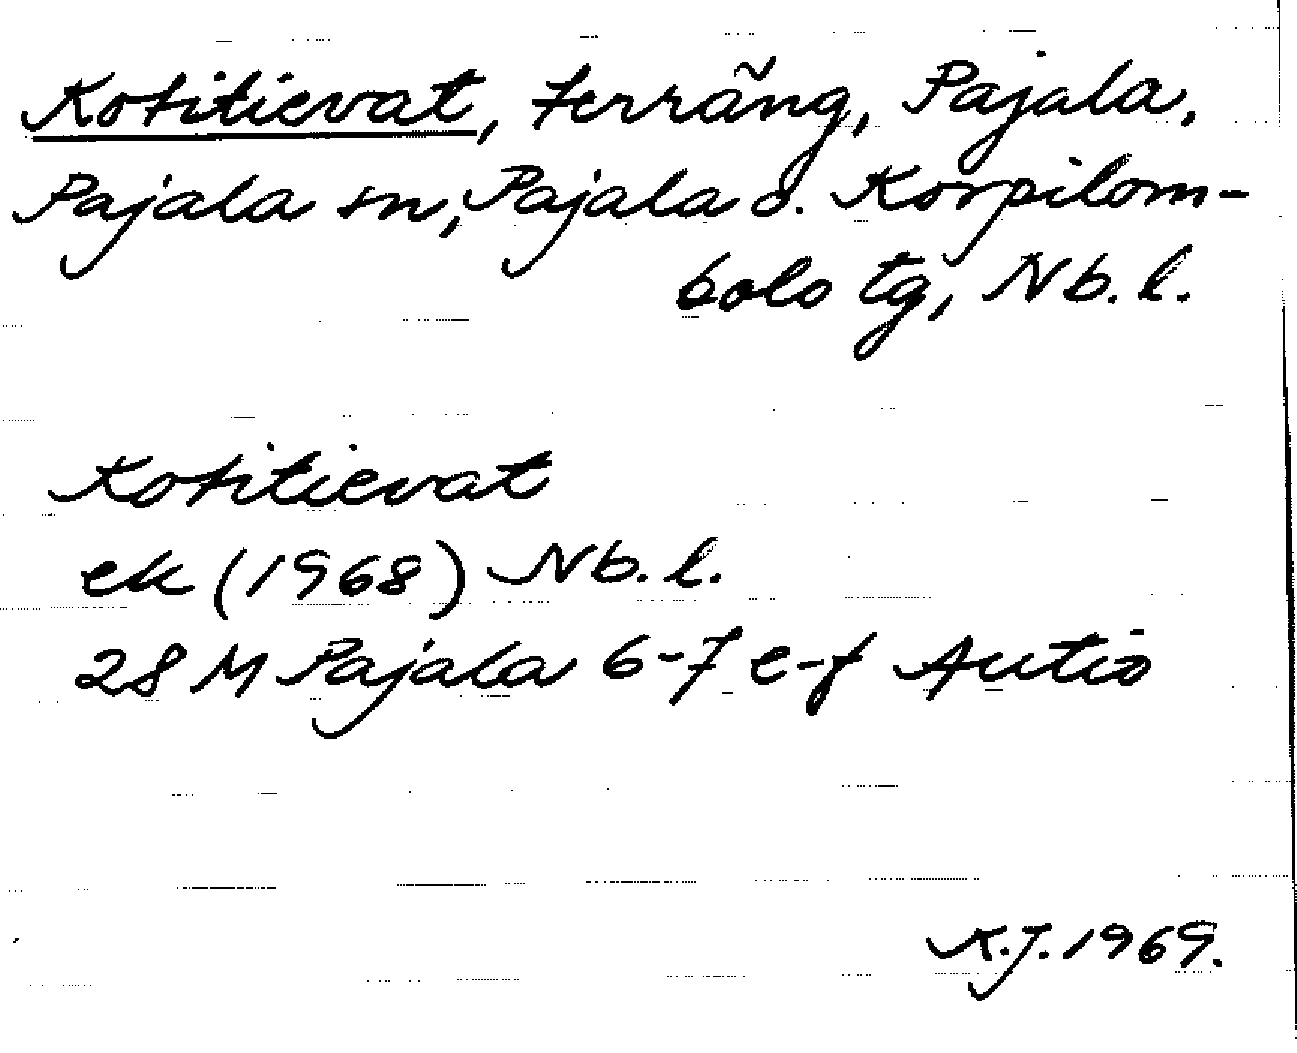 Kotitievat, terräng, Pajala,
Pajala sn, Pajala o. Korpilom-
bolo tg, Nb. l.
Kotitievat
ek (1968) Nb. l.
28 M Pajala 6-7 e-f Autio
K.J. 1969.